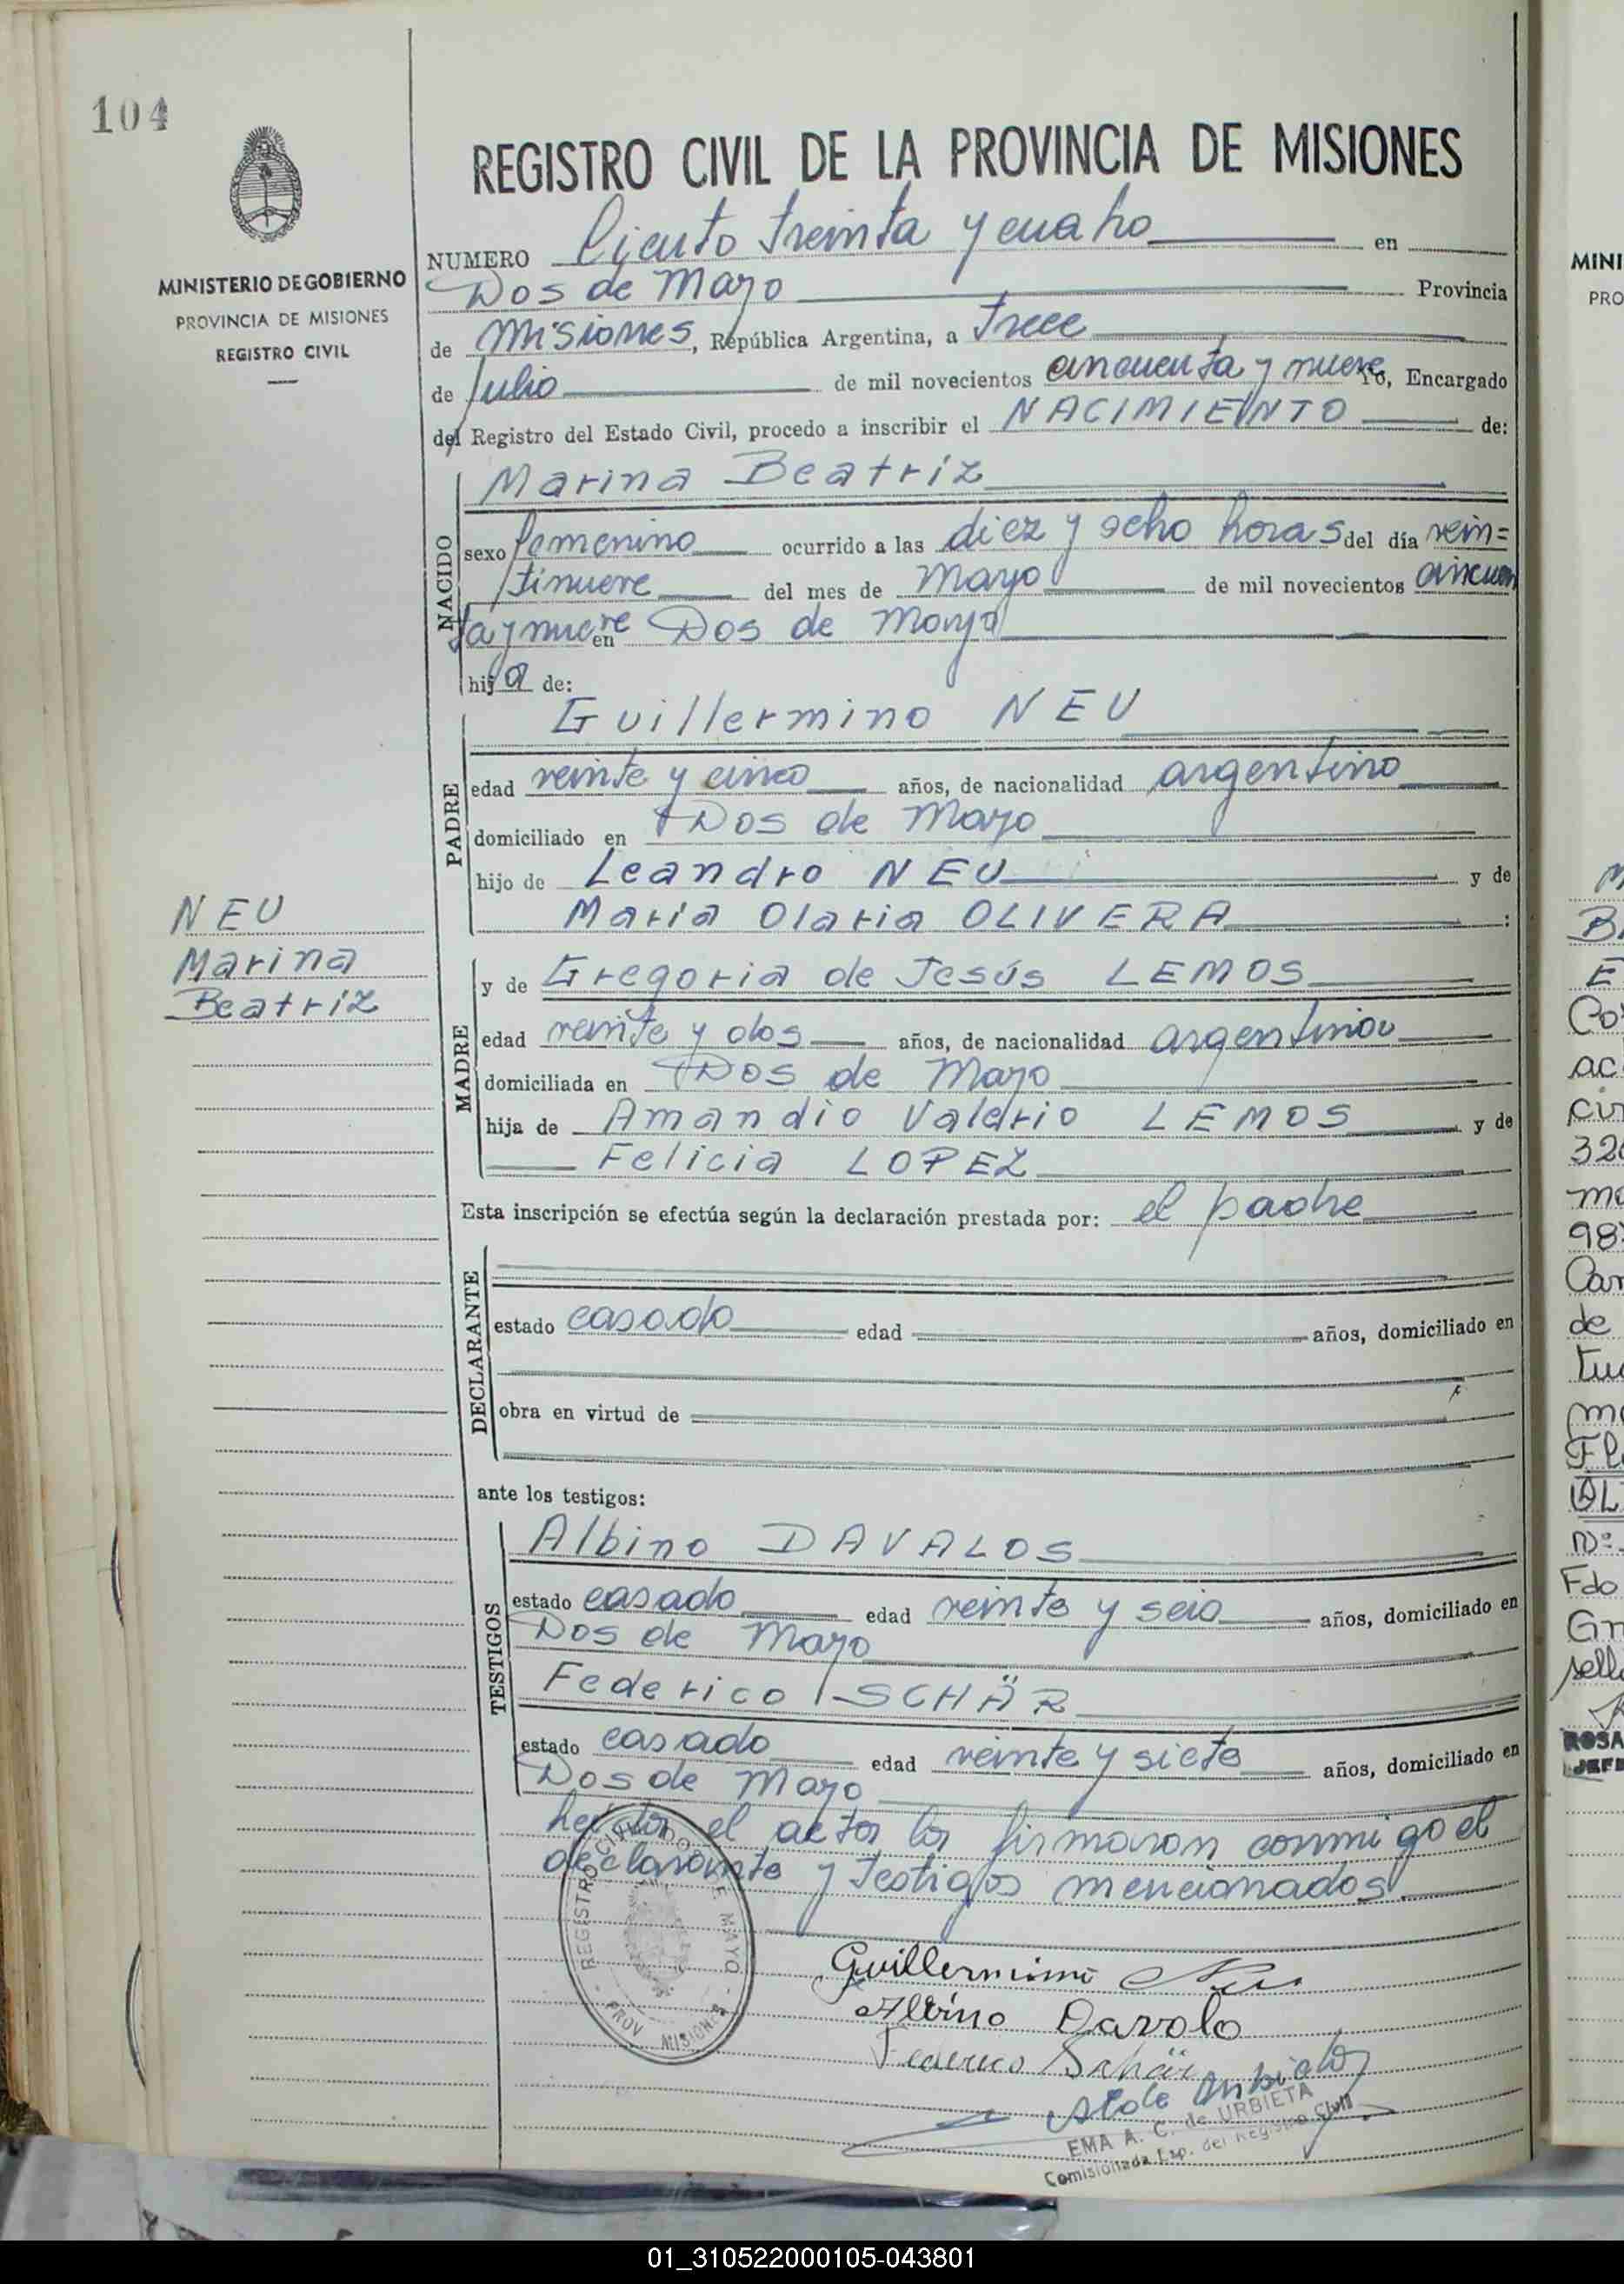 104
MINISTERIO DE GOBIERNO
PROVINCIA DE MISIONES
REGISTRO CIVIL
REGISTRO CIVIL DE LA PROVINCIA DE MISIONES
NUMERO Ciento treinta y cuatro en
Dos de Mayo Provincia
de Misiones, República Argentina, a trece
de Julio de mil novecientos cincuenta y nueve Yo, Encargado
del Registro del Estado Civil, procedo a inscribir el NACIMIENTO de:
NACIDO
Marina Beatriz
sexo femenino ocurrido a las diez y ocho horas del día vein=
tinueve del mes de Mayo de mil novecientos cincuen
ta y nueve en Dos de Mayo
hija de:
PADRE
Guillermino NEU
edad veinte y cinco años, de nacionalidad argentino
domiciliado en Dos de Mayo
hijo de Leandro NEU y de
Maria Olaria OLIVERA :
NEU
Marina
Beatriz
MADRE
y de Gregoria de Jesús LEMOS
edad veinte y dos años, de nacionalidad argentina
domiciliada en Dos de Mayo
hija de Amandio Valerio LEMOS y de
Felicia LOPEZ
Esta inscripción se efectúa según la declaración prestada por: el padre
DECLARANTE
estado casado edad años, domiciliado en
obra en virtud de
ante los testigos:
TESTIGOS
Albino DAVALOS
estado casado edad veinte y seis años, domiciliado en
Dos de Mayo
Federico SCHÄR
estado casado edad veinte y siete años, domiciliado en
Dos de Mayo
el acto la firmaron conmigo el
declarante y testigos mencionados.
REGISTRO CIVIL DOS DE MAYO - PROV MISIONES
Guillermino Neu
Albino Davalo
Federico Schär
EMA A. C. de URBIETA
Comisionada Esp. del Registro Civil
MINI
PRO
ROSA
JEFE
01_310522000105-043801